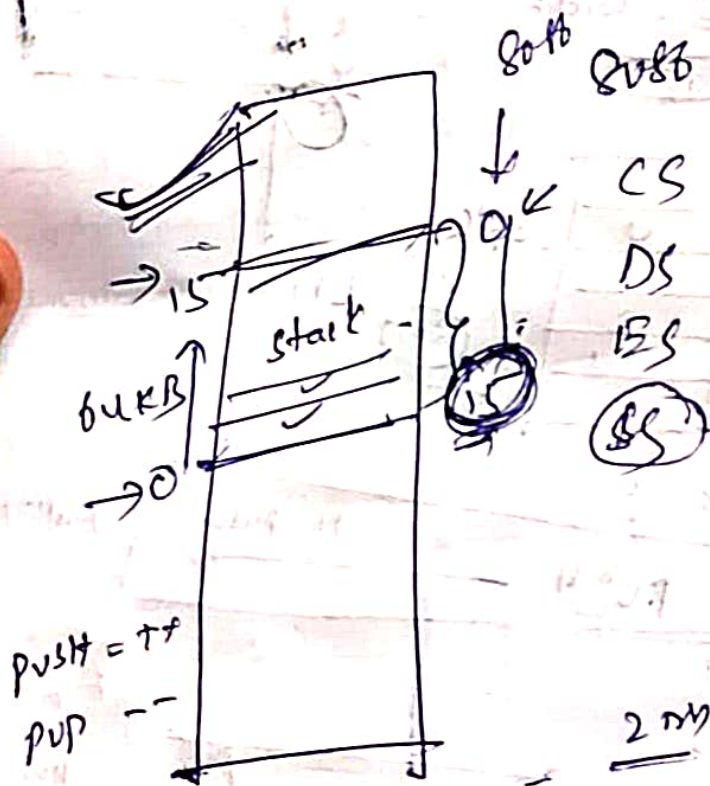 8086 8086
CS
DS
ES
SS
0
→ 15
stack
15
64KB
→ 0
PUSH = ++
POP --